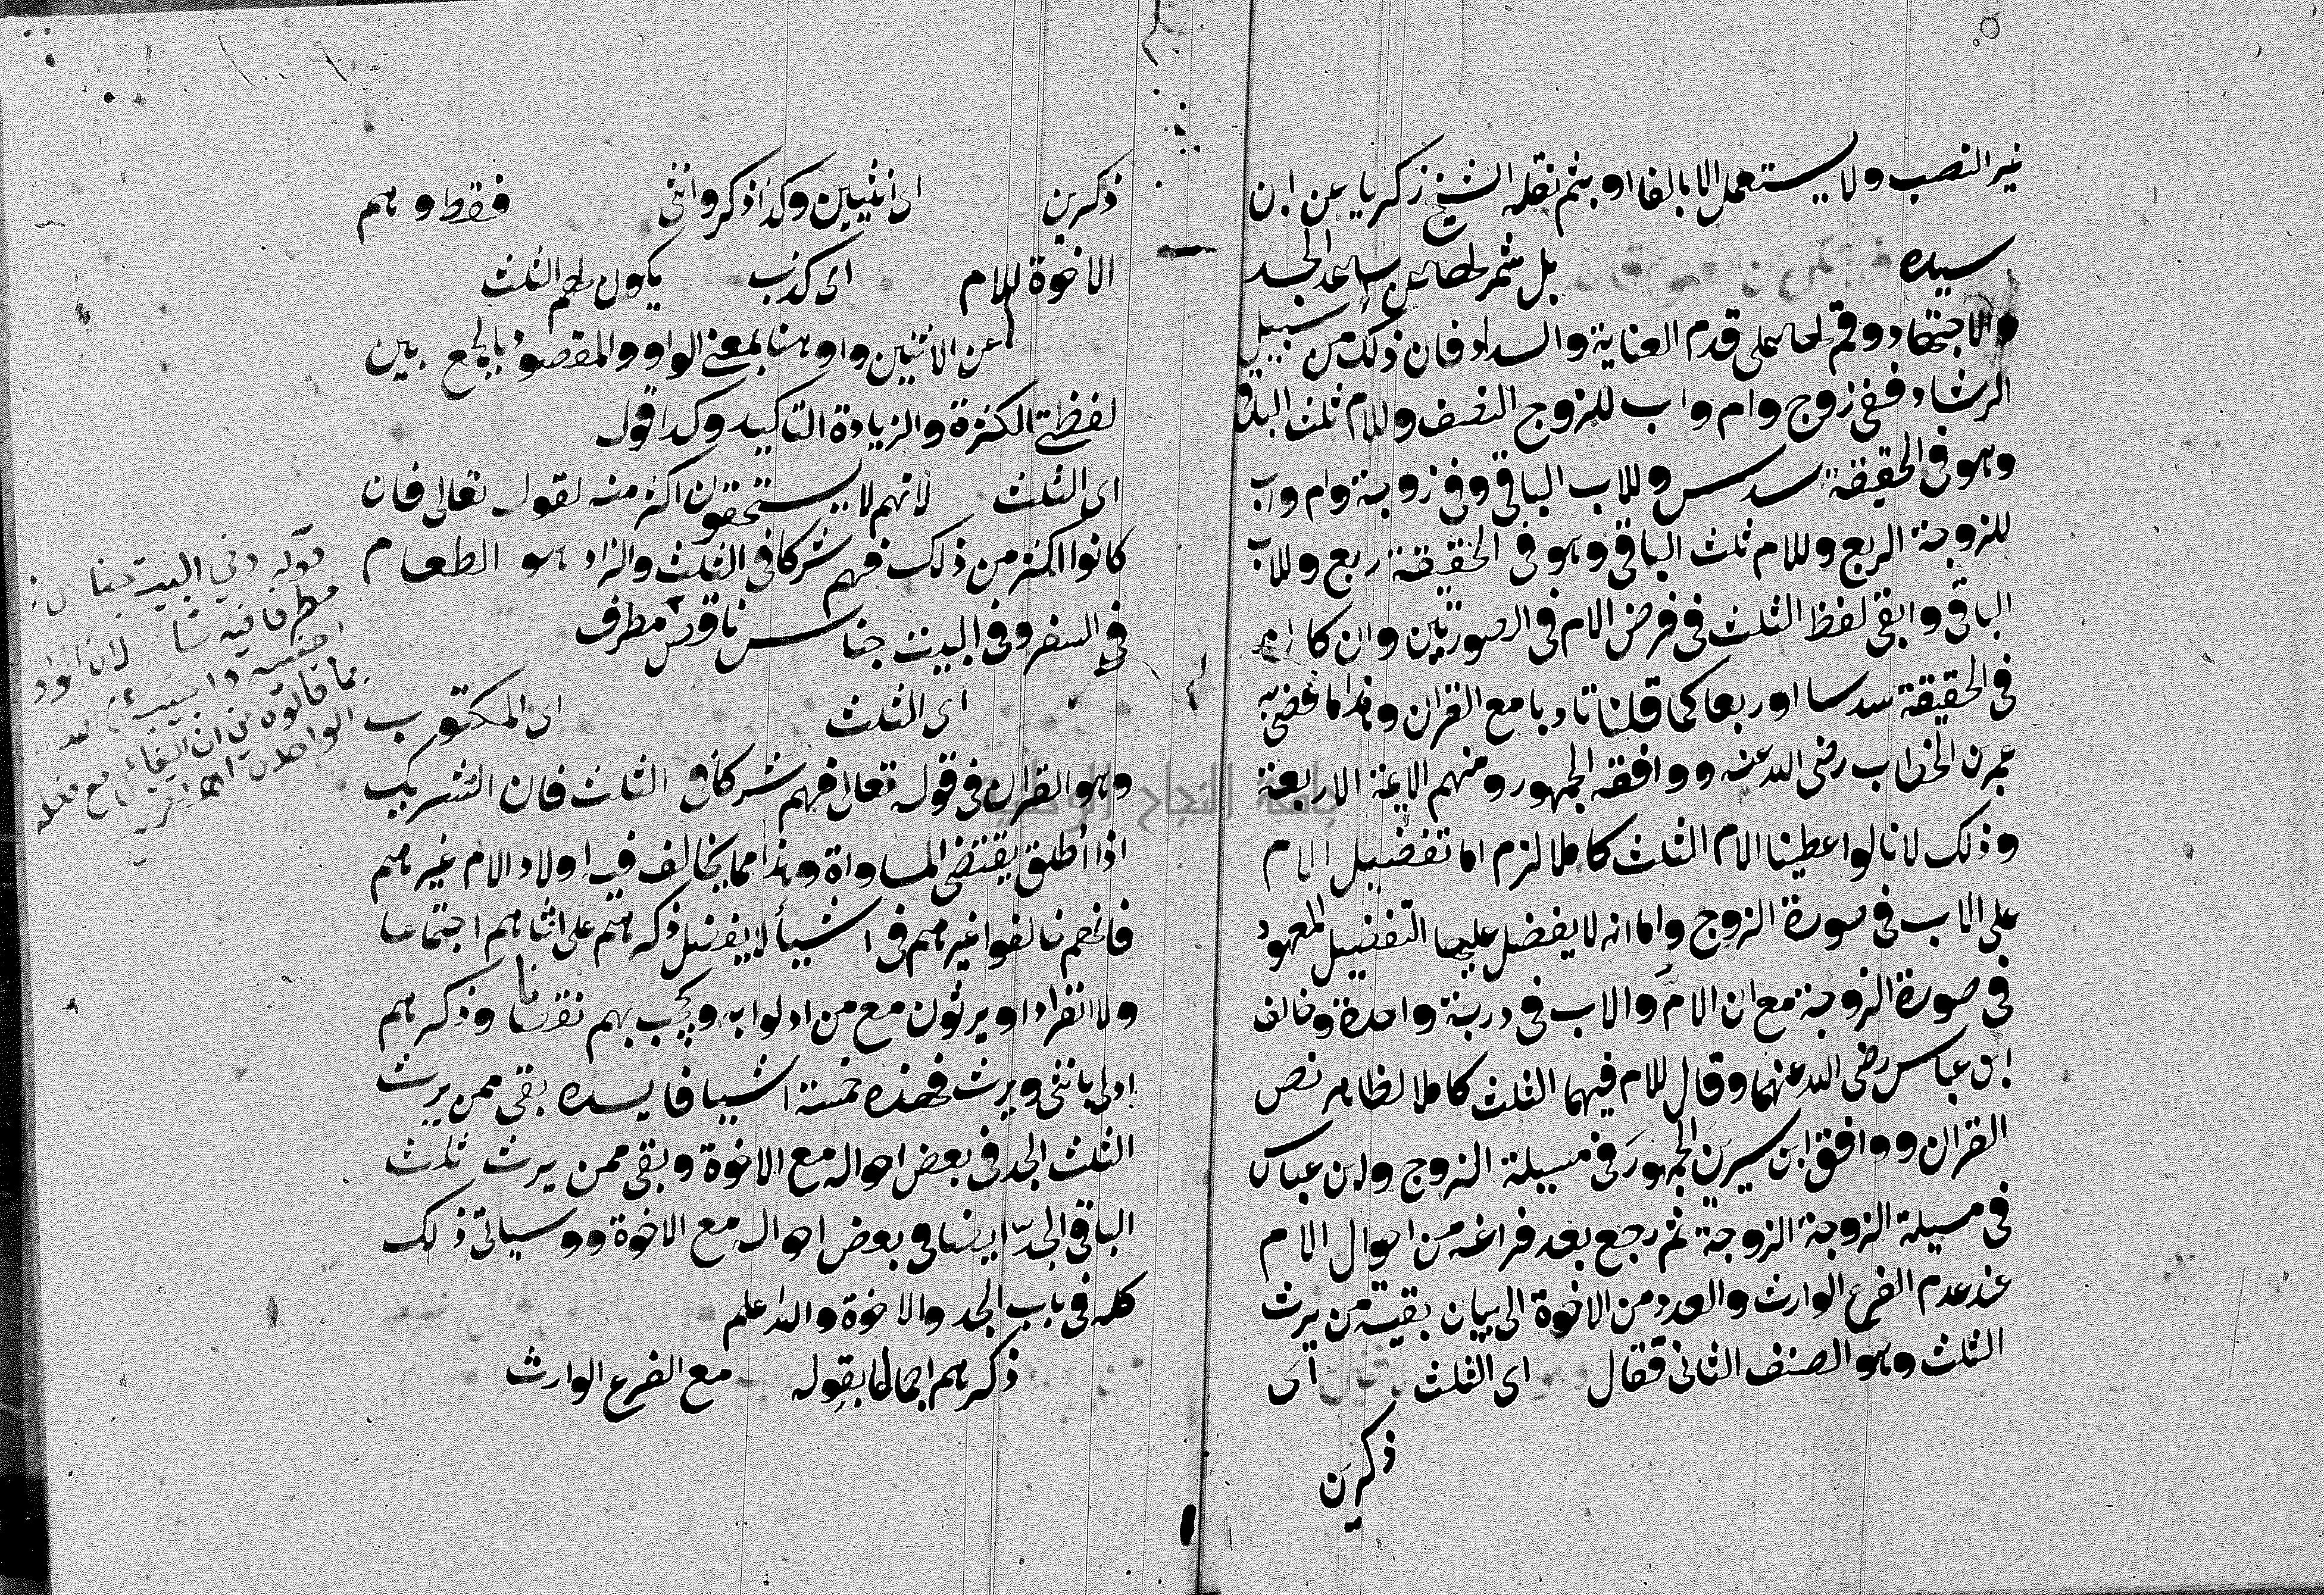 غير النصب ولا يستعمل الا بالفا او بثم نقله الشيخ زكريا عن ابن
سيده بل شمر لها عن ساعد الجد
والاجتهاد وقم لها على قدم العناية والسداد فان ذلك من سبيل
الرشاد ففى زوج وام واب للزوج النصف وللام ثلث الباقى
وهو فى الحقيقة سدس وللاب الباقى وفى زوجة وام واب
للزوجة الربع وللام ثلث الباقى وهو فى الحقيقة ربع وللاب
الباقى وابقى لفظ الثلث فى فرض الام فى الصورتين وان كان
فى الحقيقة سدسا او ربعا كما قلنا تادبا مع القران وهذا ما قضى به
عمر بن الخطاب رضى الله عنه ووافقه الجمهور ومنهم الايمة الاربعة
وذلك لانا لو اعطينا الام الثلث كاملا لزم اما تفضيل الام
على الاب فى صورة الزوج واما انه لا يفضل عليها التفضيل المعهود
فى صورة الزوجة مع ان الام والاب فى درجة واحدة وخالف
ابن عباس رضى الله عنهما وقال للام فيهما الثلث كاملا لظاهر نص
القران ووافق ابن سيرين الجمهور فى مسيلة الزوج وابن عباس
فى مسيلة الزوجة الزوجة ثم رجع بعد فراغه من احوال الام
عند عدم الفرع الوارث والعدد من الاخوة الى بيان بقية من يرث
الثلث وهو الصنف الثانى فقال اى الثلث اى
ذكرين
ذكرين اى انثيين وكذا ذكر وانثى فقط وهم
الاخوة للام اى كذب يكون لهم الثلث
عن الاثنين واو هنا بمعنى الواو والمقصود بالجمع بين
لفظتى الكثرة والزيادة التاكيد وكذا قول
اى الثلث لانهم لا يستحقون اكثر منه لقوله تعالى فان
كانوا اكثر من ذلك فهم شركا فى الثلث والزاد هو الطعام
فى السفر وفى البيت جناس ناقص مطرف
اى الثلث اى المكتوب
وهو القران فى قوله تعالى فهم شركا فى الثلث فان التشريك
اذا اطلق يقتضى المساواة وهذا مما يخالف فيه اولاد الام غيرهم
فانهم خالفوا غيرهم فى اشيأ لا يفضل ذكرهم على انثاهم اجتماعا
ولا انفرادا ويرثون مع من ادلوا به ويحجب بهم نقصانا وذكرهم
ادلى بانثى ويرث فهذه خمسة اشيا فايده بقى ممن يرث
الثلث الجد فى بعض احواله مع الاخوة وبقى ممن يرث ثلث
الباقى الجد ايضا فى بعض احواله مع الاخوة ووسياتى ذلك
كله فى باب الجد والاخوة والله اعلم
ذكرهم اجمالا بقوله مع الفرع الوارث
قوله وفي البيت جناس
مطرف فيه لان الزاد
مما قالوه من ان الفاعل مع فعله